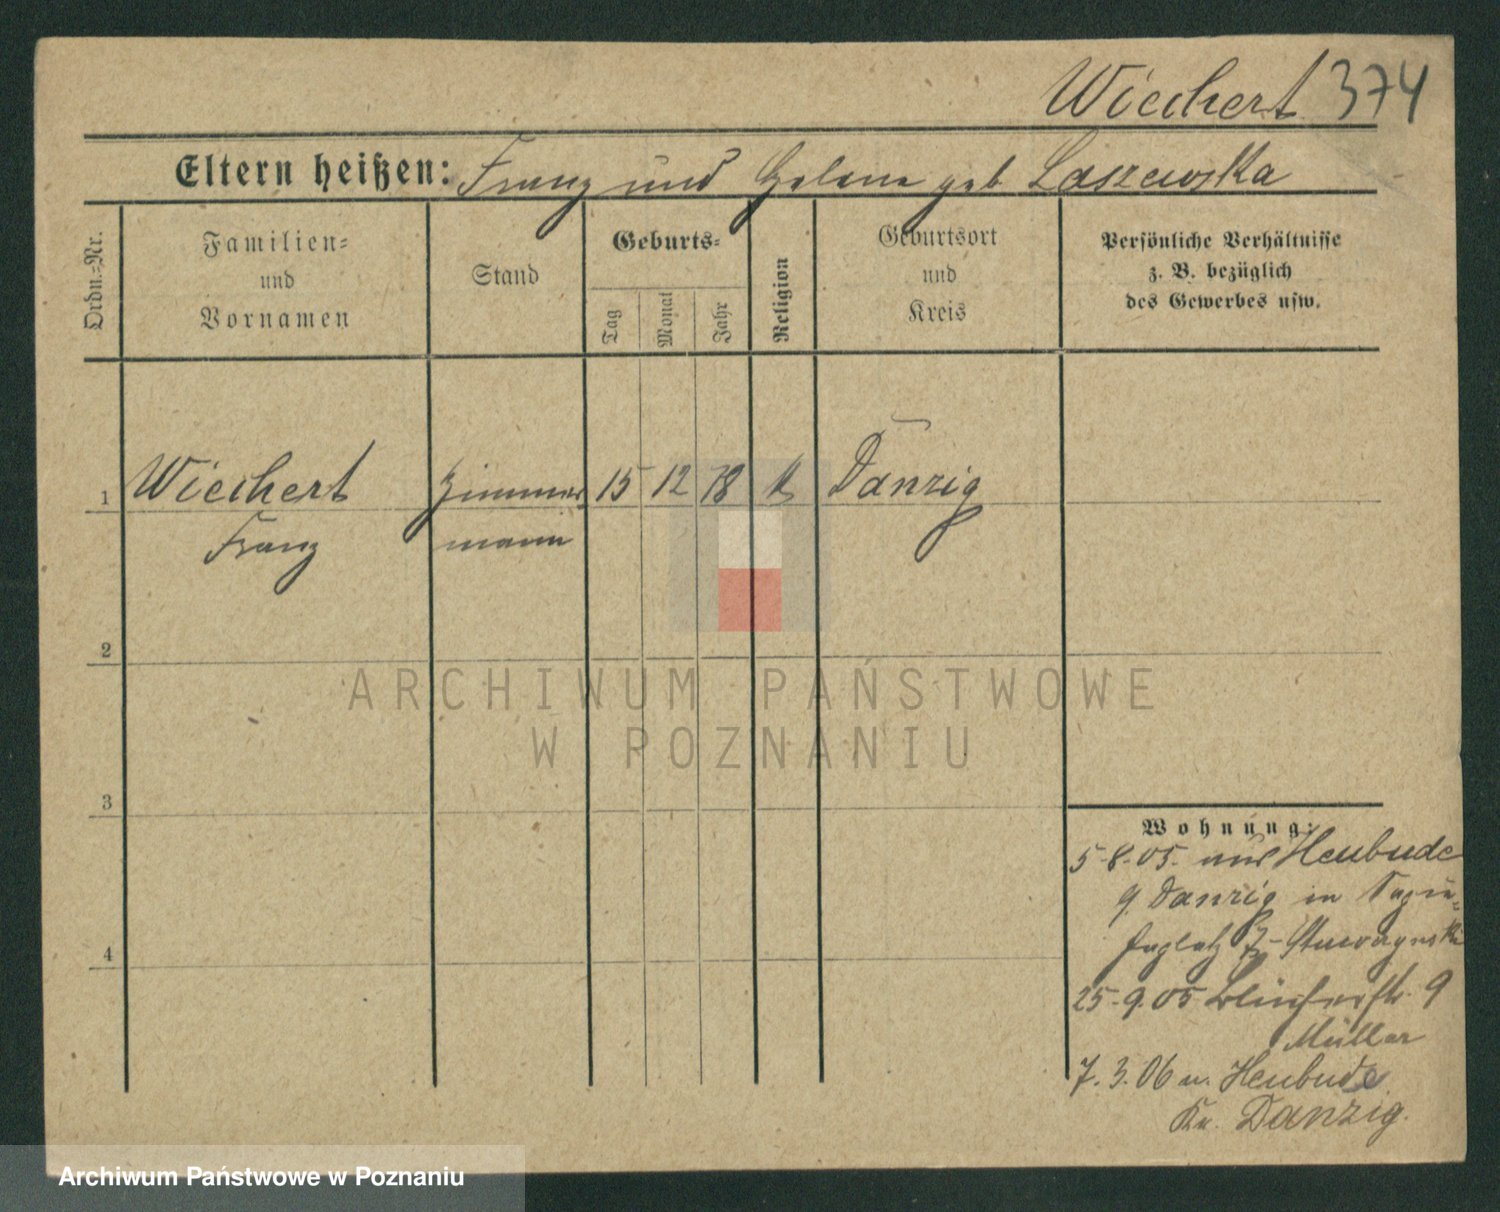 Wiechert 374
Eltern heißen: Franz und Helene geb Laszewska
Ordn.=Nr.
Familien=
und
Vornamen
Stand
Geburts=
Tag
Monat
Jahr
Religion
Geburtsort
und
Kreis
Persönliche Verhältnisse
z. B. bezüglich
des Gewerbes usw.
1 Wiechert Zimmer 15 12 78 k Danzig
Franz mann
2
3
4
Wohnung:
5-8-05. aus Heubude
b. Danzig in
25-9.05 9
Müller
7.3.06 n. Heubude
Kr. Danzig.
ARCHIWUM PAŃSTWOWE
W POZNANIU
Archiwum Państwowe w Poznaniu